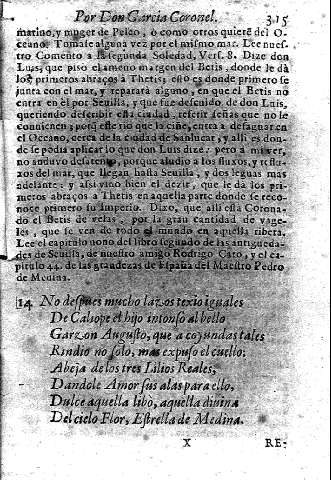 Por Don Garcia Coronel. 315
marino, y muger de Peleo, ò como otros quierẽ del O-
ceano. Tomase alguna vez por el mismo mar. Lee nues-
tro Comento a la segunda Soledad, Vers. 8. Dize don
Luis, que piso el ameno margen del Betis, donde le dà
los primeros abraços à Thetis; esto es donde primero se
junta con el mar, y reparará alguno, en que el Betis no
entra en èl por Seuilla, y que fue descuido, de don Luis,
queriendo descriuir esta ciudad, referir señas que no le
conuienen; pues este rio que la ciñe, entra a desaguar en
el Oceano, cerca de la ciudad de Sanlucar, y alli es don-
de se podia aplicar lo que don Luis dize: pero à mi ver,
no anduvo desatento, porque aludio a los fluxos, y reflu-
xos del mar, que llegan hasta Seuilla, y dos leguas mas
adelante: y assi vino bien el dezir, que le dà los pri-
meros abraços a Thetis en aquella parte donde se reco-
noce primero su Imperio. Dize, que alli està Corona-
do el Betis de velas, por la gran cantidad de vage-
les, que se ven de todo el mundo en aquella ribera.
Lee el capitulo nono del libro segundo de las antigueda-
des de Seuilla, de nuestro amigo Rodrigo Caro, y el ca-
pitulo 44. de las grandezas de España del Maestro Pedro
de Medina.
14 No despues mucho lazos texio iguales
De Caliope el hijo intonso al bello
Garzon Augusto, que a coyundas tales
Rindio no solo, mas expuso el cuello:
Abeja de los tres Lilios Reales,
Dandole Amor sus alas para ello,
Dulce aquella libò, aquella diuina
Del cielo Flor, Estrella de Medina.
X RE-